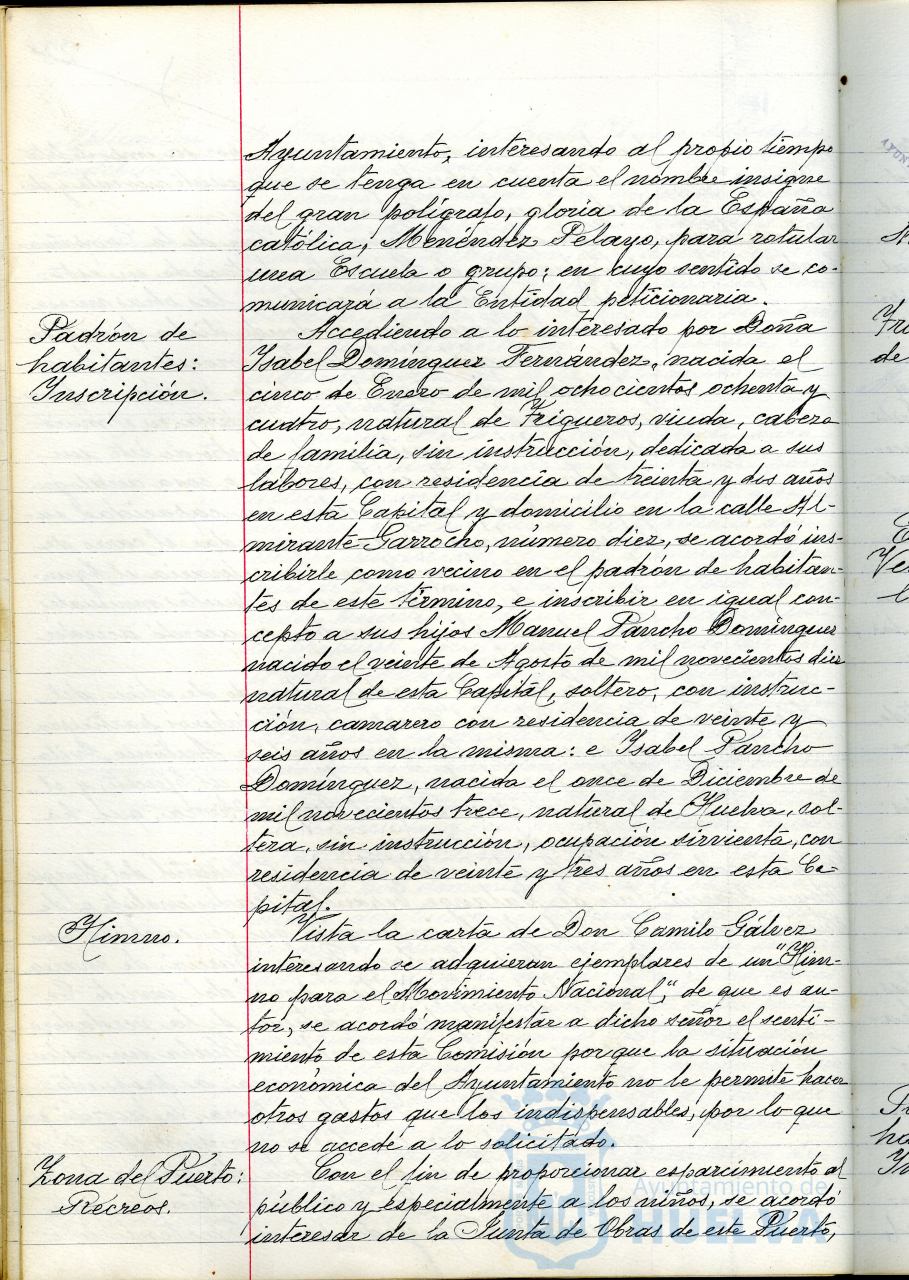 Ayuntamiento, interesando al propio tiempo
que se tenga en cuenta el nombre insigne
del gran polígrafo, gloria de la España
católica, Menéndez Pelayo, para rotular
una Escuela o grupo; en cuyo sentido se co-
municará a la Entidad peticionaria.
Padrón de
habitantes:
Inscripción.
Accediendo a lo interesado por Doña
Isabel Domínguez Fernández, nacida el
cinco de Enero de mil ochocientos ochenta y
cuatro, natural de Trigueros, viuda, cabeza
de familia, sin instrucción, dedicada a sus
labores, con residencia de treinta y dos años
en esta Capital y domicilio en la calle Al-
mirante Garrocho, número diez, se acordó ins-
cribirle como vecino en el padrón de habitan-
tes de este término, e inscribir en igual con-
cepto a sus hijos Manuel Pancho Domínguez
nacido el veinte de Agosto de mil novecientos diez
natural de esta Capital, soltero, con instruc-
ción, camarero con residencia de veinte y
seis años en la misma: e Isabel Pancho
Domínguez, nacida el once de Diciembre de
mil novecientos trece, natural de Huelva, sol-
tera, sin instrucción, ocupación sirvienta, con
residencia de veinte y tres años en esta Ca-
pital.
Himno.
Vista la carta de Don Camilo Gálvez
interesando se adquieran ejemplares de un "Him-
no para el Movimiento Nacional", de que es au-
tor, se acordó manifestar a dicho señor el senti-
miento de esta Comisión porque la situación
económica del Ayuntamiento no le permite hacer
otros gastos que los indispensables, por lo que
no se accede a lo solicitado.
Zona del Puerto:
Recreos.
Con el fin de proporcionar esparcimiento al
público y especialmente a los niños, se acordó
interesar de la Junta de Obras de este Puerto,
Ayuntamiento de
HUELVA